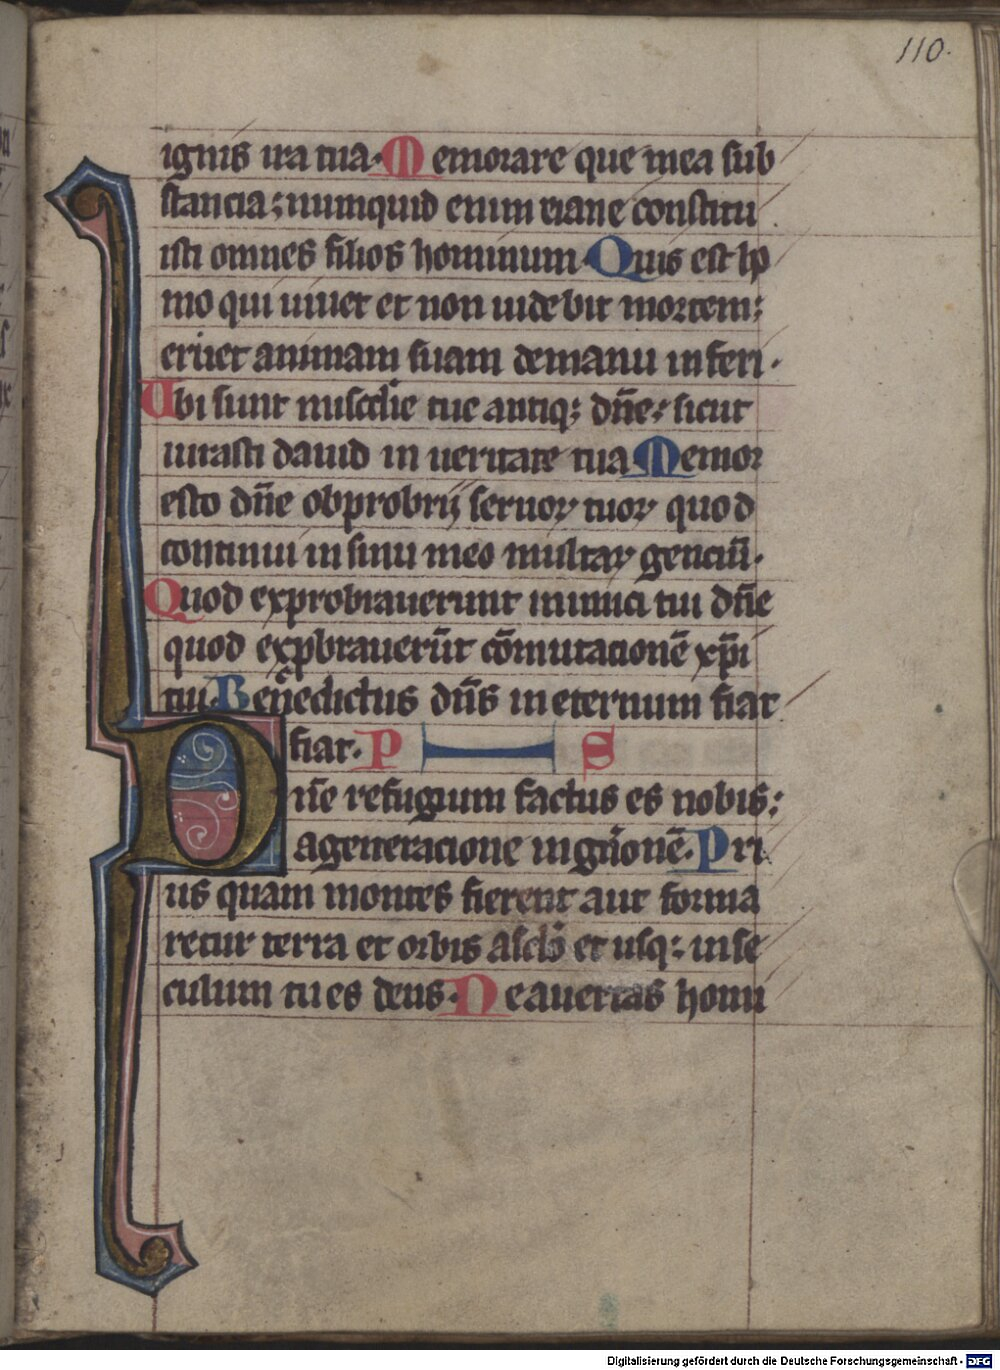 110.
ignis ira tua. Memorare que mea sub
stancia; numquid enim uane constitu
isti omnes filios hominum. Quis est ho
mo qui uiuet et non uidebit mortem;
eruet animam suam demanu inferi.
Ubi sunt miscd̄ie tue antiq; dn̄e; sicut
iurasti dauid in ueritate tua Memor
esto dn̄e obprobrij seruoꝝ tuoꝝ quod
continui in sinu meo multaꝝ genciū.
Quod exprobrauerunt inimici tui dn̄e
quod exp̱brauerūt cōmutacionē xp̄i
tui. Benedictus dn̄s ineternum fiat
fiat. P S
Dn̄e refugium factus es nobis;
ageneracione ingn̄ionē. Pri
us quam montes fierent aut forma
retur terra et orbis asclo et usq; inse
culum tu es deus. Ne auertas homi
Digitalisierung gefördert durch die Deutsche Forschungsgemeinschaft - DFG